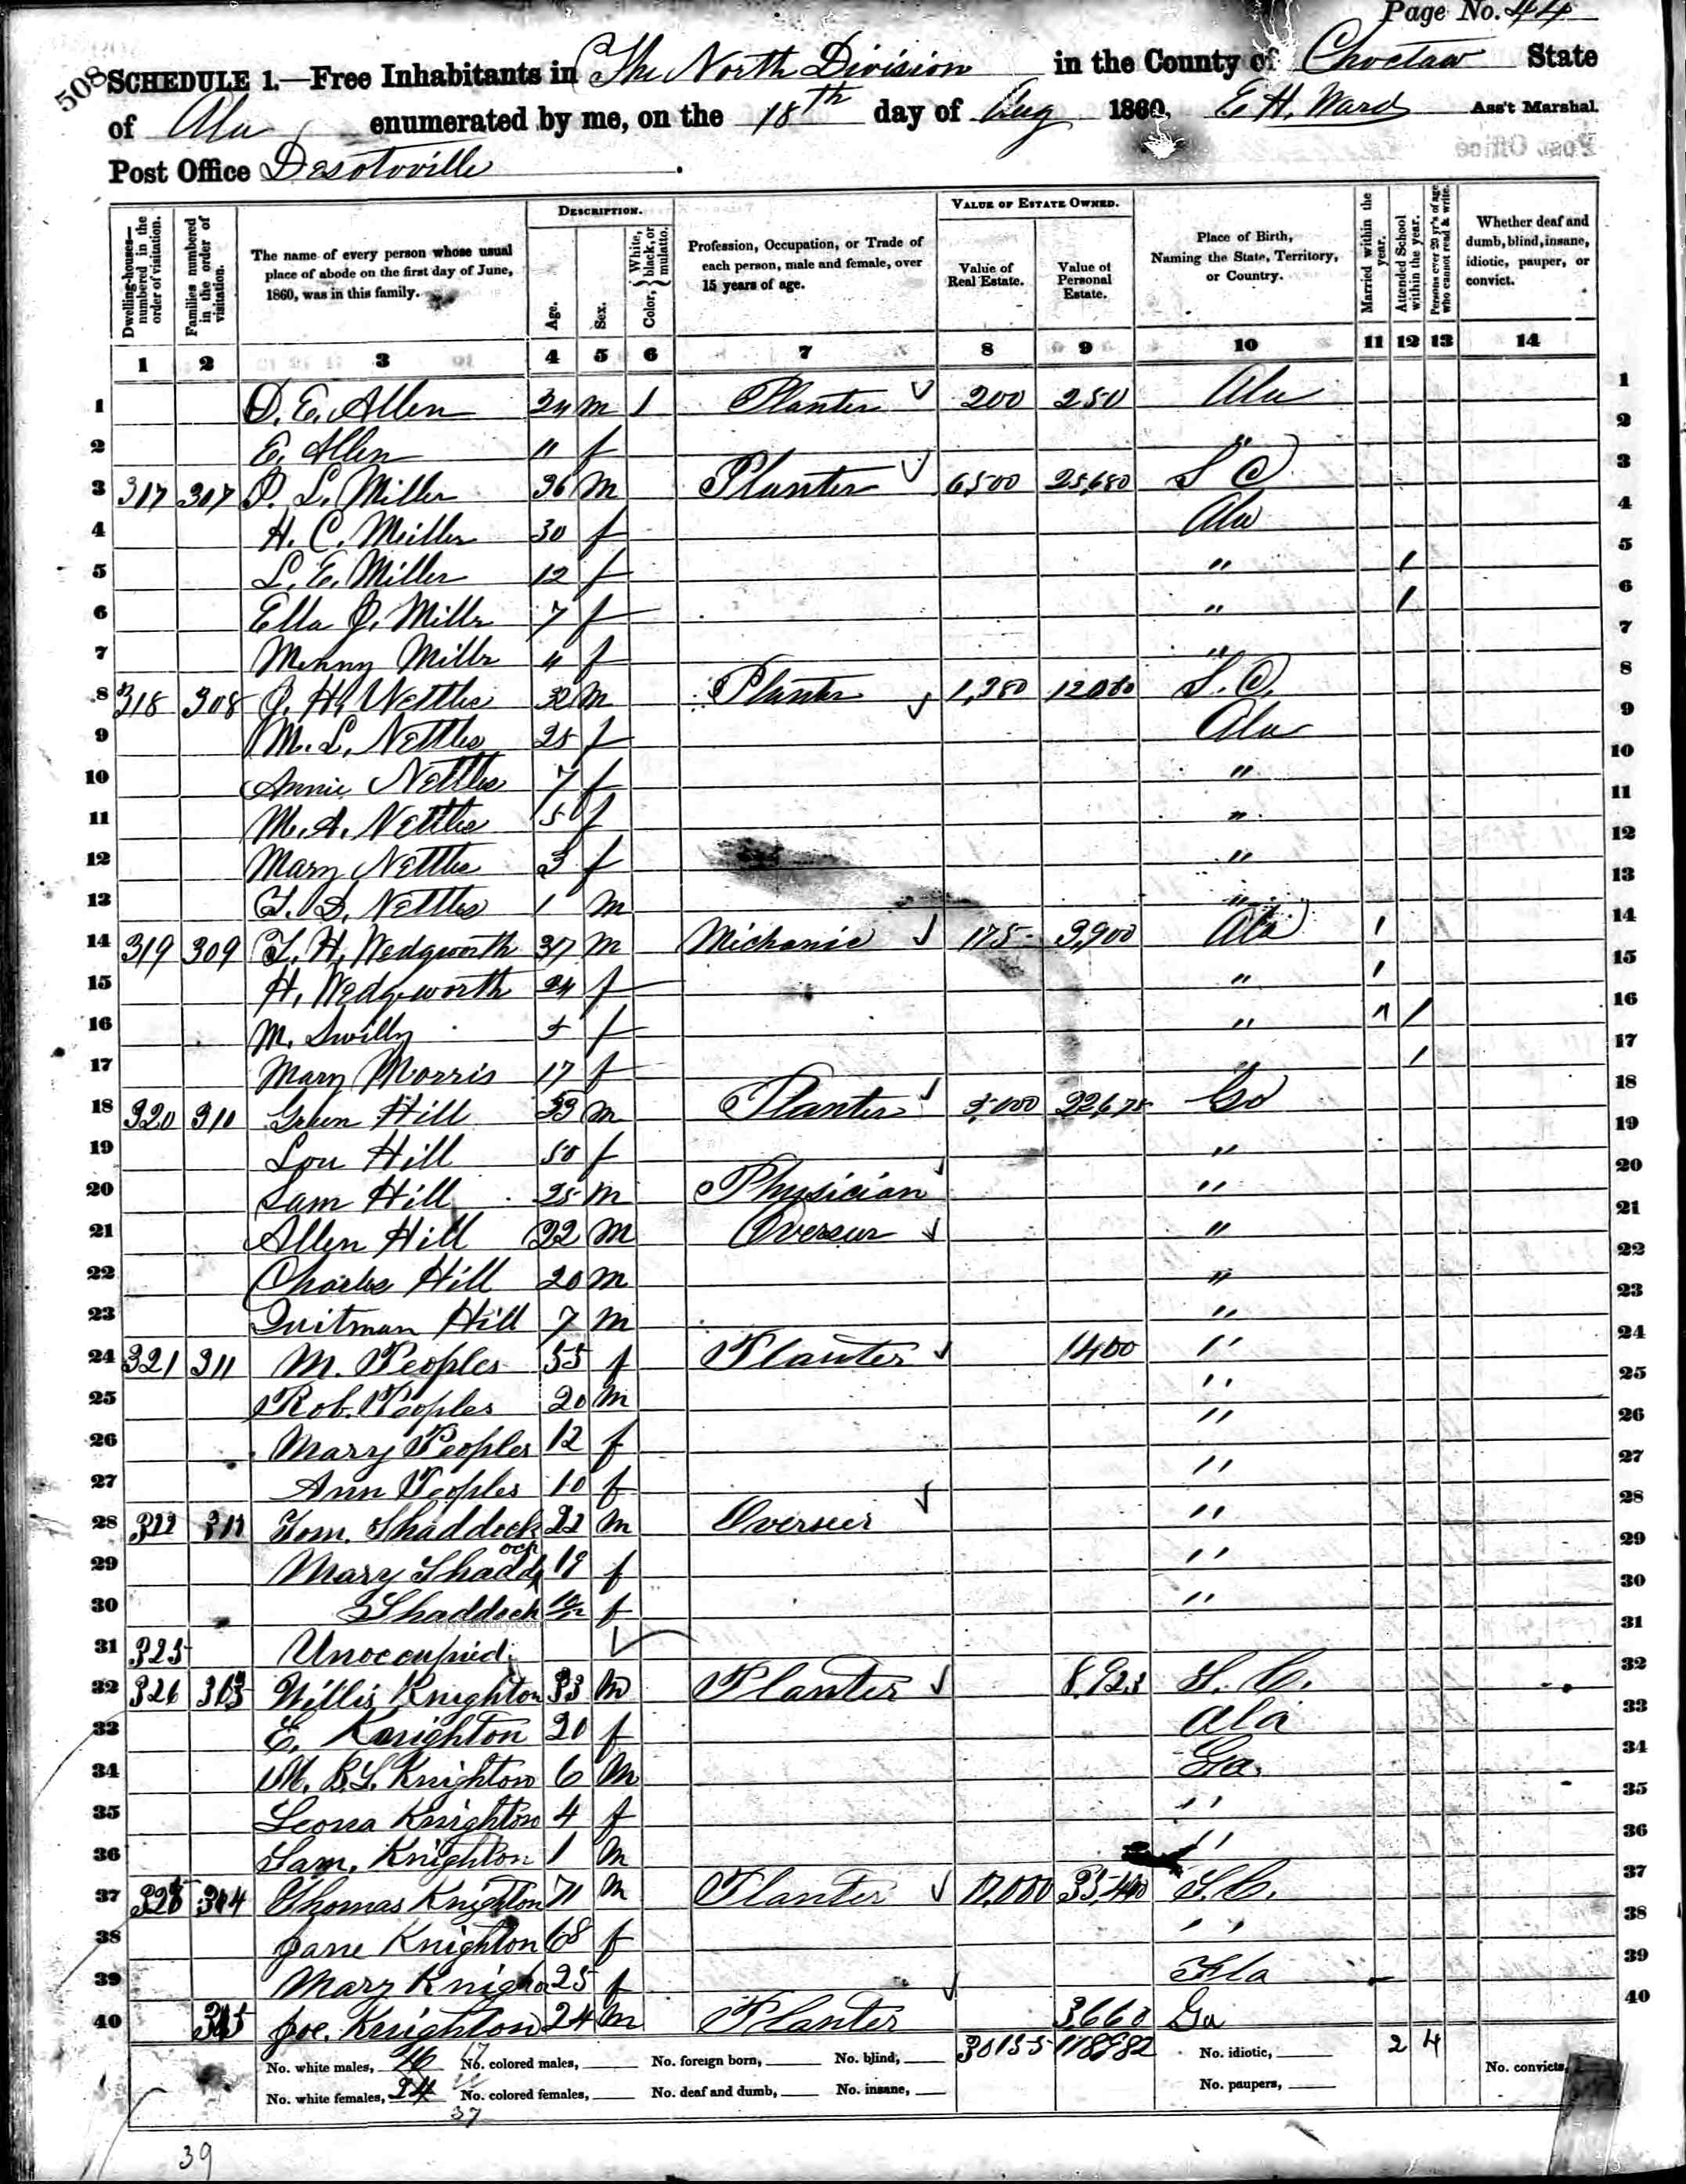 Page No. 44
508
SCHEDULE 1.—Free Inhabitants in The North Division in the County of Choctaw State
of Ala enumerated by me, on the 18th day of Aug 1860. E. H. Ward Ass't Marshal.
Post Office Desotoville
Post Office
DESCRIPTION. VALUE OF ESTATE OWNED.
Dwelling-houses— numbered in the order of visitation. Families numbered in the order of visitation. The name of every person whose usual place of abode on the first day of June, 1860, was in this family. Age. Sex. Color, White, black, or mulatto. Profession, Occupation, or Trade of each person, male and female, over 15 years of age. Value of Real Estate. Value of Personal Estate. Place of Birth, Naming the State, Territory, or Country. Married within the year. Attended School within the year. Persons over 20 yr's of age who cannot read & write. Whether deaf and dumb, blind, insane, idiotic, pauper, or convict.
1 2 3 4 5 6 7 8 9 10 11 12 13 14
1 D. E. Allen 24 m 1 Planter 200 250 Ala 1
2 E. Allen 11 f " 2
3 317 307 P. L. Miller 36 m Planter 6500 25,680 S C 3
4 H. C. Miller 30 f Ala 4
5 L. E. Miller 12 f " / 5
6 Ella J. Millr 7 f " / 6
7 Millr 4 f " 7
8 318 308 J. H. Nettles 32 m Planter 1,280 S. C. 8
9 M. L. Nettles 25 f Ala 9
10 Annie Nettles 7 f " 10
11 M. A. Nettles 5 f " 11
12 Mary Nettles 3 f " 12
13 Nettles 1 m " 13
14 319 309 T. H. Wedgworth 37 m Michanic 175 3,900 Ala / 14
15 H. Wedgworth 24 f " / 15
16 M. Swilly 5 f " " / 16
17 Mary Morris 17 f " / 17
18 320 310 Green Hill 53 m Planter 22,675 Ga 18
19 Lou Hill 50 f " 19
20 Sam Hill 25 m Physician " 20
21 Allen Hill 22 m Overseer " 21
22 Charles Hill 20 m " 22
23 Quitman Hill 7 m " 23
24 321 311 M. Peoples 55 f Planter 1400 " 24
25 Rob. Peoples 20 m " 25
26 Mary Peoples 12 f " 26
27 Ann Peoples 10 f " 27
28 322 312 Tom. Shaddock 22 m Overseer " 28
29 Mary Shaddock 19 f " 29
30 Shaddock 10/12 f " 30
MyFamily.com
31 325 Unoccupied. 31
32 326 313 Willis Knighton 33 m Planter 8,923 S. C. 32
33 E. Knighton 20 f Ala 33
34 Knighton 6 m Ga. 34
35 Leona Knighton 4 f " 35
36 Sam. Knighton 1 m " 36
37 314 Thomas Knighton 71 m Planter S. C. 37
38 Jane Knighton 68 f " 38
39 Mary 25 f Ala 39
40 315 Joe. Knighton 24 m Planter 3660 Ga 40
No. white males, 16 17 No. colored males, No. foreign born, No. blind, 30155 118982 No. idiotic, 2 4 No. convicts,
No. white females, 24 No. colored females, No. deaf and dumb, No. insane, No. paupers,
37
39